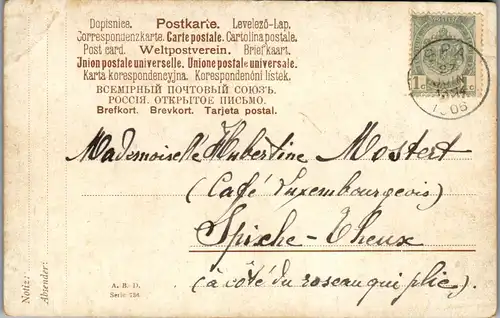 Dopisnice. Postkarte. Levelező-Lap.
Correspondenzkarte. Carte postale. Cartolina postale.
Post card. Weltpostverein. Brief kaart.
Union postale universelle. Unione postale universale.
Karta korespondencyjna. Korespondenční lístek.
ВСЕМІРНЫЙ ПОЧТОВЫЙ СОЮЗЪ.
РОССІЯ. ОТКРЫТОЕ ПИСЬМО.
Brefkort. Brevkort. Tarjeta postal.
SPA
JUIN
1906
1 c
Mademoiselle Hubertine Mostert
(Café Luxembourgeois)
Spixhe-Theux
(à côté du roseau qui plie).
Notiz:
Absender:
A. R.-D.
Serie 734.